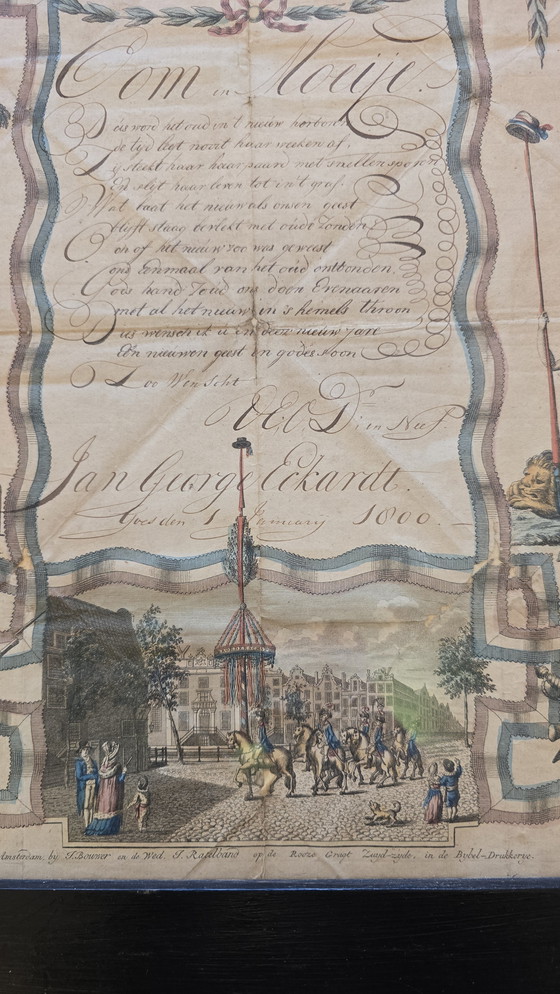 Oom en Moeije.
Dus word het oud in't nieuw herbore
de tyd legt nooit haar veeken af,
Zy steekt haar haar paard met snellen spooren
En slyt haar leven tot in't graf.
Wat baat het nieuw als onsen geest
blyft staag bevlekt met oude zonden?
Och of het nieuw zoo was geweest
ons Eenmaal van het oud ontbonden,
Gods hand zoud ons doen Evenaaren
met al het nieuw in 's hemels throon
Dies wensch ik u in deeze nieuw jare
Een nieuwen geest en godes zoon
Zoo Wenscht
UEl. Dr. en Neef
Jan George Eckardt.
Goes den 1 January 1800.
Amsterdam, by J. Bouwer en de Wed. J. Ratelband op de Rooze Gragt Zuyd-zyde, in de Bybel-Drukkerye.